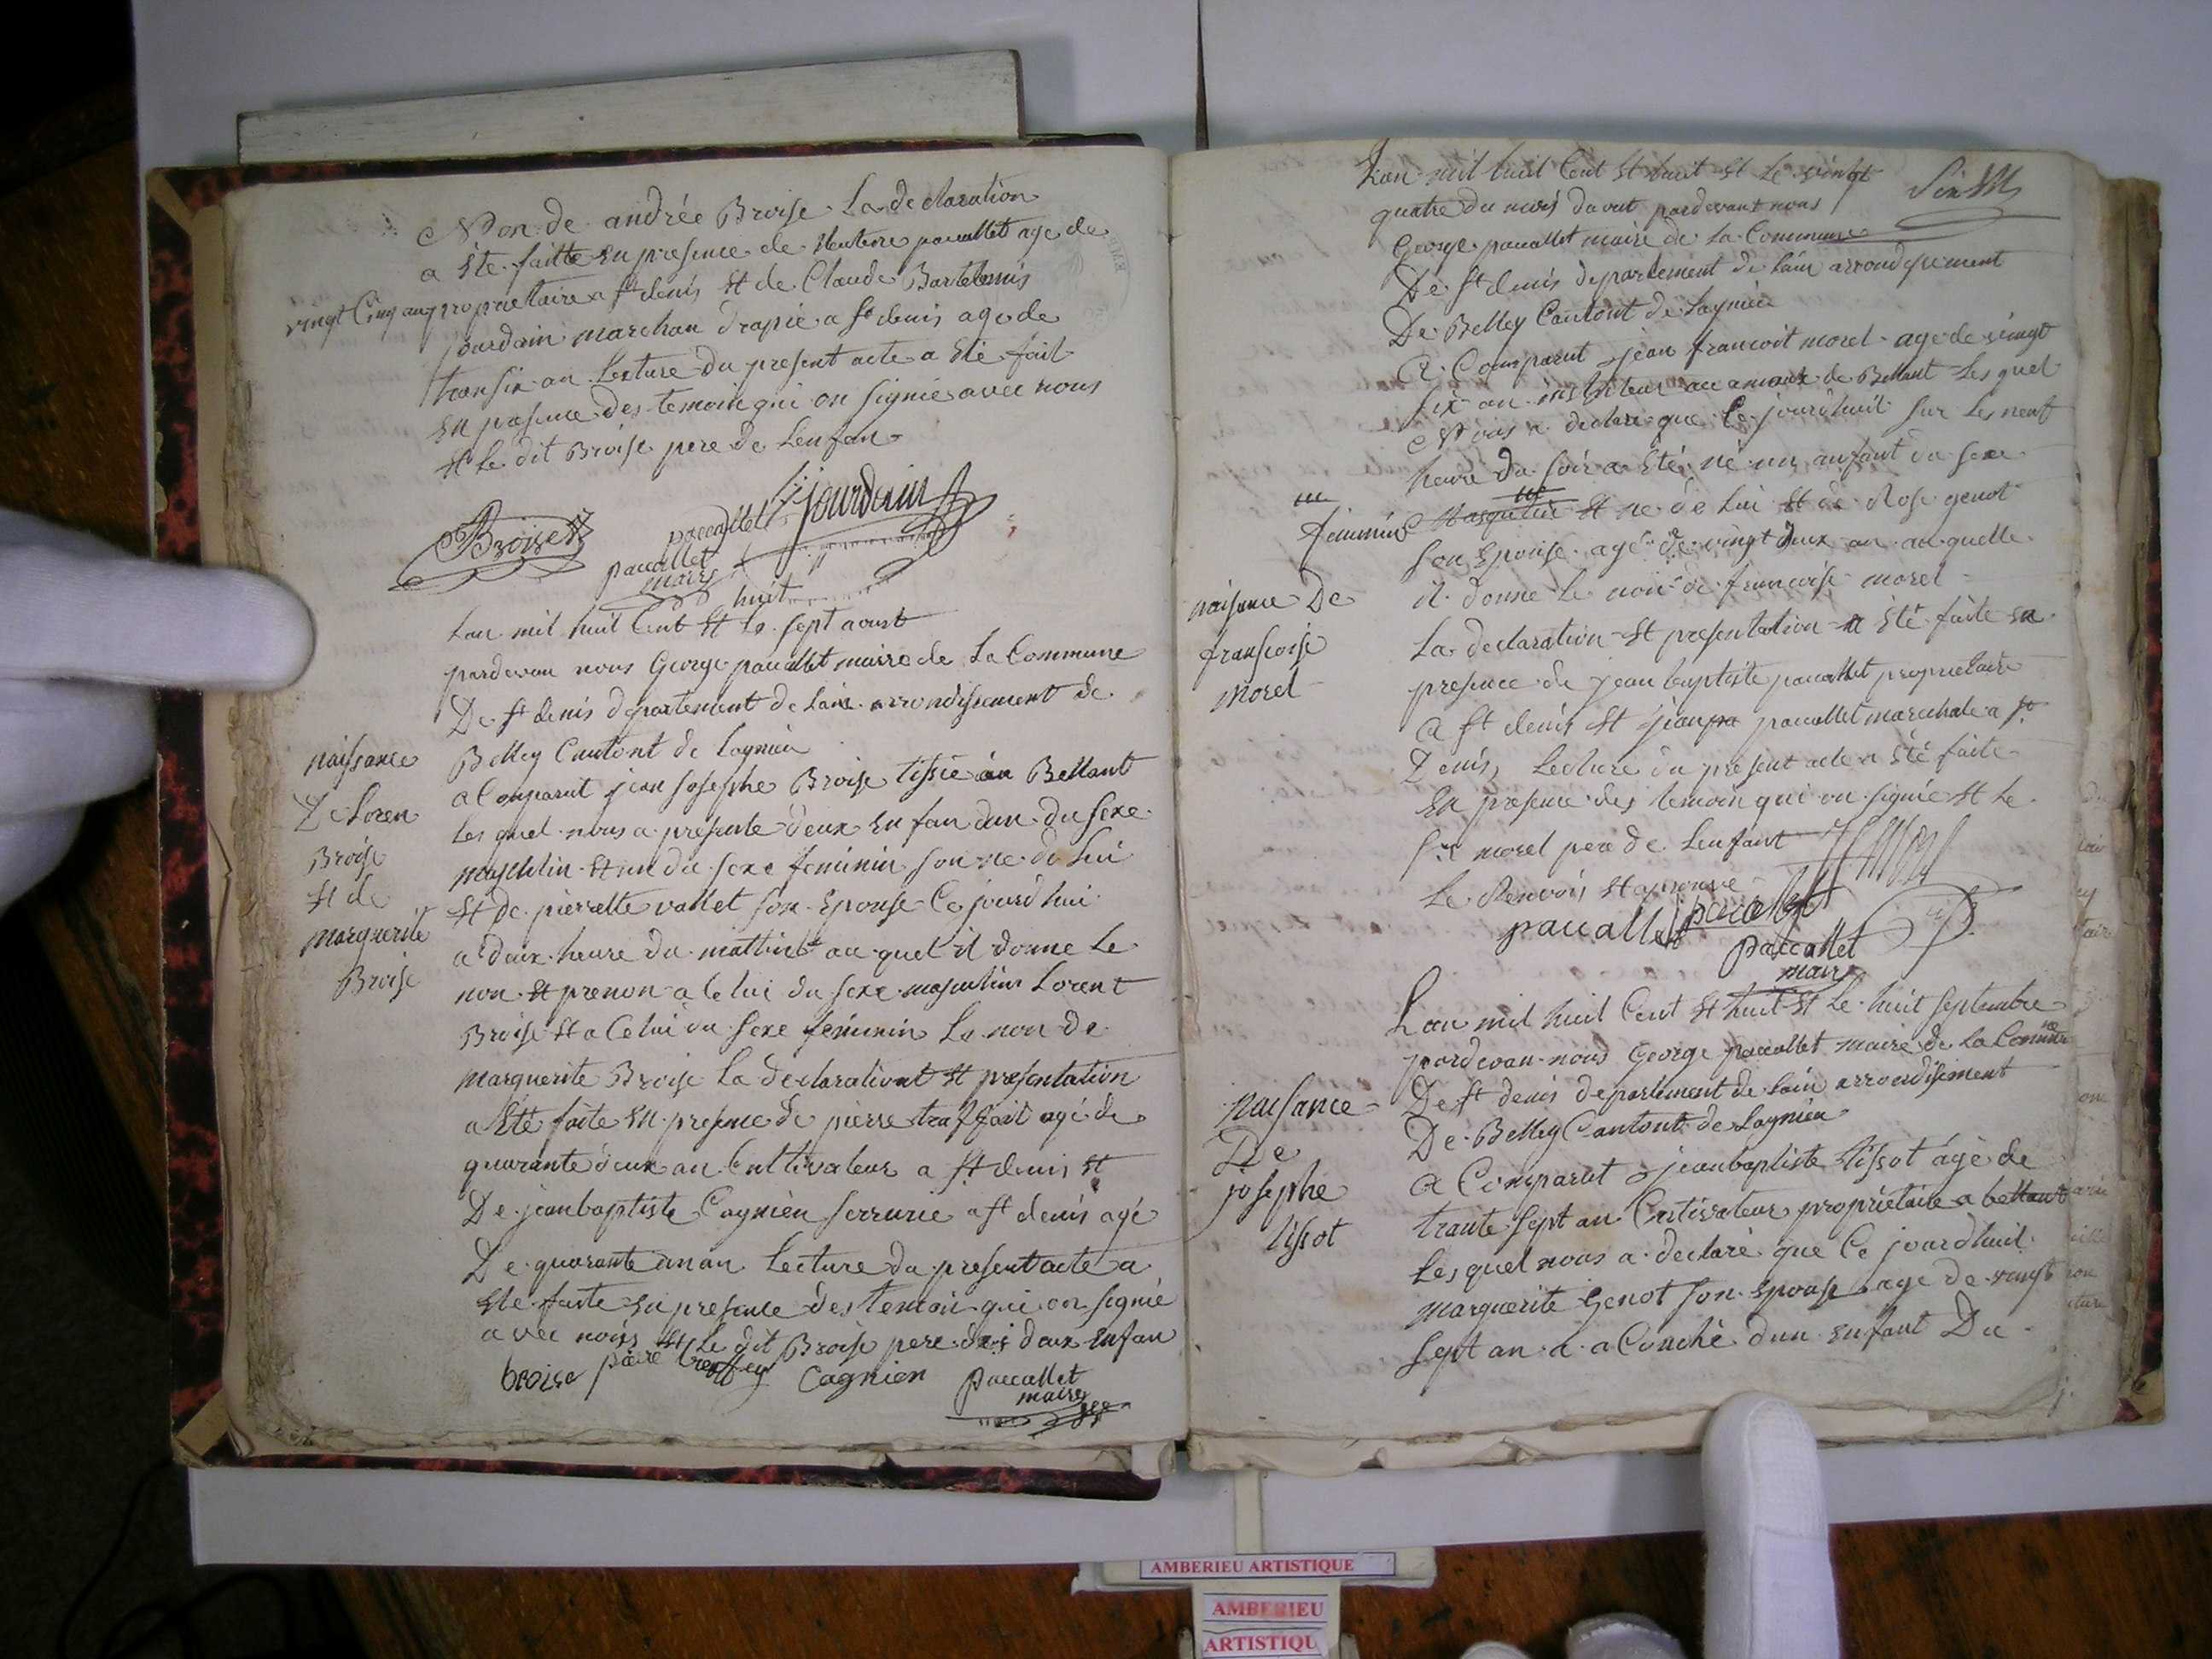 Non de andrée Broise La declaration
a été faitte En presence de paucallet age de
vingt Cinq an proprietaire a St denis Et de Claude Bartelemis
jourdain marchan drapié a St denis age de
transix an Lecture du present acte a Eté fait
En presence des temoin qui on signié avec nous
Et Le dit Broise pere de Lenfan
Broise paucallet jourdain
paucallet
maire
huit
Lan mil huit Cent Et Le sept aoust
pardevan nous George paucallet maire de La Commune
De St denis departement de Lain arrondissement de
Belley Cantont de Lagnieu
naissance
De Loren
Broise
Et de
Marguerite
Broise
a Comparut jean josephe Broise tissié au Bettant
Les quel nous a presente deux En fan dun du Sexe
masculin Et un du Sexe feminin son ne de Lui
Et de pierrette vallet son Epouse Ce jourd hui
a deux heure du mattin au quel il donne Le
non Et prenon a Celui du Sexe masculin Lorent
Broise Et a Celui du Sexe feminin Le non de
Marguerite Broise La declarationt Et presentation
a Eté faite En presence de pierre traffait agé de
quarante deux an Cultivateur a St denis Et
De jean baptiste Cagnien serrurié a St denis agé
De quarante an Lecture du present acte a
Ete faite En presence des temoin qui on signié
avec nous Et Le dit Broise pere des deux Enfan
broise piere treffey Cagnien paucallet
maire
Lan mil huit Cent Et huit Et Le vinht
quatre du mois davut pardevant nous
George paucallet maire de La Commune
De St denis departement de Lain arrondissement
De Belley Cantont de Lagnieu
A Comparut jean francoit morel age de vingt
six an instituteur au amaux de Bettant Les quel
Nous a declare que Ce jourdhuit sur Les neuf
heure du soir a Eté né un anfant du sexe
feminin
Masqulin Et ne de Lui Et de Rose genot
son Epouse agé de vingt deux an au quelle
il donne Le non de francoise morel
naisance De
francoise
Morel
La declaration Et presentation a Eté faite En
presence de jean baptiste paucallet proprietaire
a St denis Et jean pa paucallet marechale a St
Denis, Lecture du present acte a Eté faite
En presence des temoin qui on signié Et Le
Sr morel pere de Lenfant
Le Renvois Et aprouvé
paucallet paucallet
paucallet
maire
Lan mil huit Cent Et huit Et Le huit septembre
pardevan nous George paucallet maire de La Commune
De St denis departement de Lain arrondisement
De Belley Cantont de Lagnieu
Naisance
De
josephe
tissot
A Comparut jean baptiste tissot agé de
trante sept an Cultivateur propriétaire a bettant
Les quel nous a declaré que Ce jourdhuit
Marguerite Genot son Epouse age de vingt
sept an a a Couché dun enfant Du
AMBERIEU ARTISTIQUE
AMBERIEU
ARTISTIQU